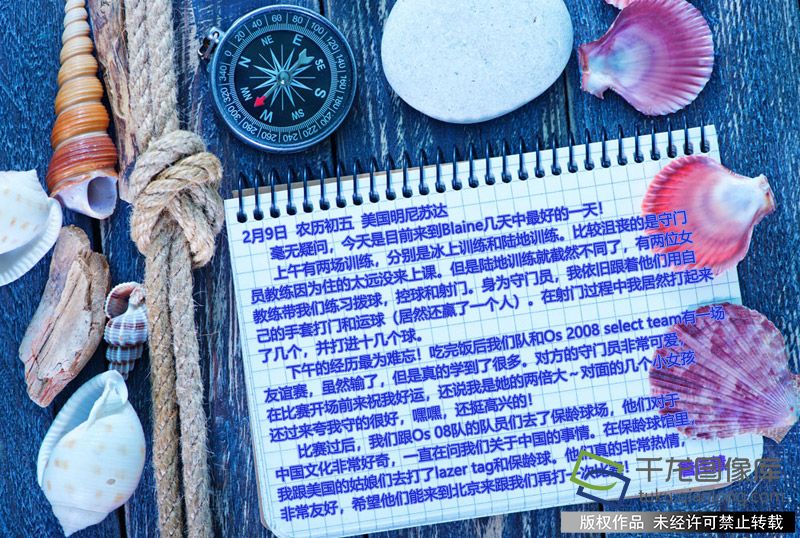 2月9日 农历初五 美国明尼苏达
毫无疑问,今天是目前来到Blaine几天中最好的一天!
上午有两场训练,分别是冰上训练和陆地训练。比较沮丧的是守门
员教练因为住的太远没来上课。但是陆地训练就截然不同了,有两位女
教练带我们练习拨球,控球和射门。身为守门员,我依旧跟着他们用自
己的手套打门和运球(居然还赢了一个人)。在射门过程中我居然打起来
了几个,并打进十几个球。
下午的经历最为难忘!吃完饭后我们队和Os 2008 select team有一场
友谊赛,虽然输了,但是真的学到了很多。对方的守门员非常可爱,
在比赛开场前来祝我好运,还说我是她的两倍大~对面的几个小女孩
还过来夸我守的很好,嘿嘿,还挺高兴的!
比赛过后,我们跟Os 08队的队员们去了保龄球场,他们对于
中国文化非常好奇,一直在问我们关于中国的事情。在保龄球馆里,
我跟美国的姑娘们去打了lazer tag和保龄球。他们真的非常热情,
非常友好,希望他们能来到北京来跟我们再打一次
千龙图像库
版权作品 未经许可禁止转载
N
NE
E
SE
S
SW
W
NW